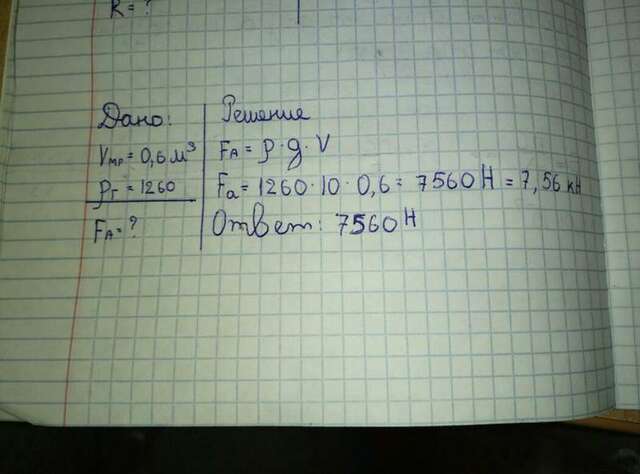 R = ?
Дано:
Vмр = 0,6 м³
ρг = 1260
FA = ?
Решение
FA = ρ · g · V
Fa = 1260 · 10 · 0,6 = 7560 Н = 7,56 кН
Ответ: 7560 Н